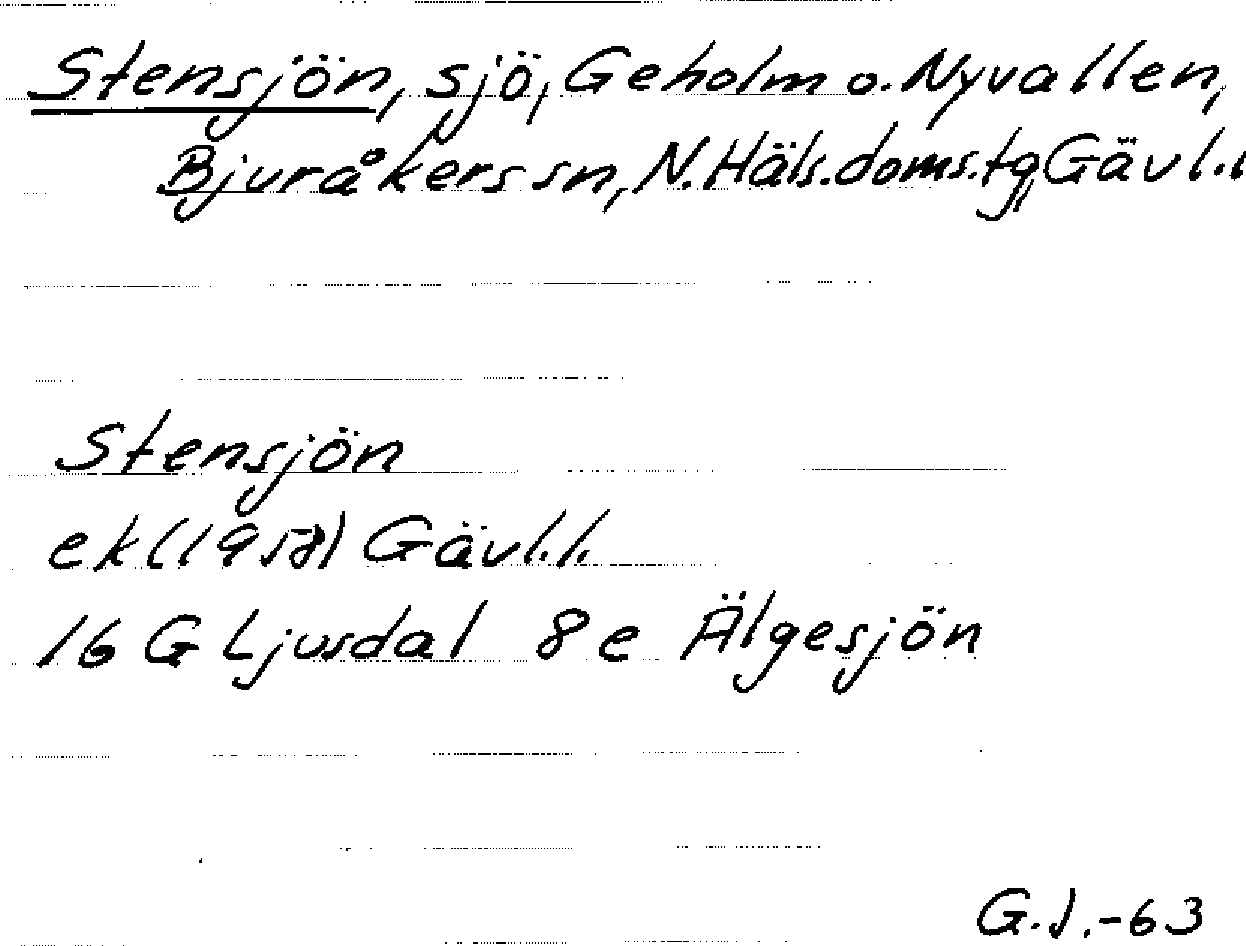 Stensjön, sjö, Geholm o. Nyvallen,
Bjuråkers sn, N. Häls. doms. tg, Gävl. l
Stensjön
ek (1957) Gävl. l.
16 G Ljusdal 8 e Älgesjön
G. J. -63